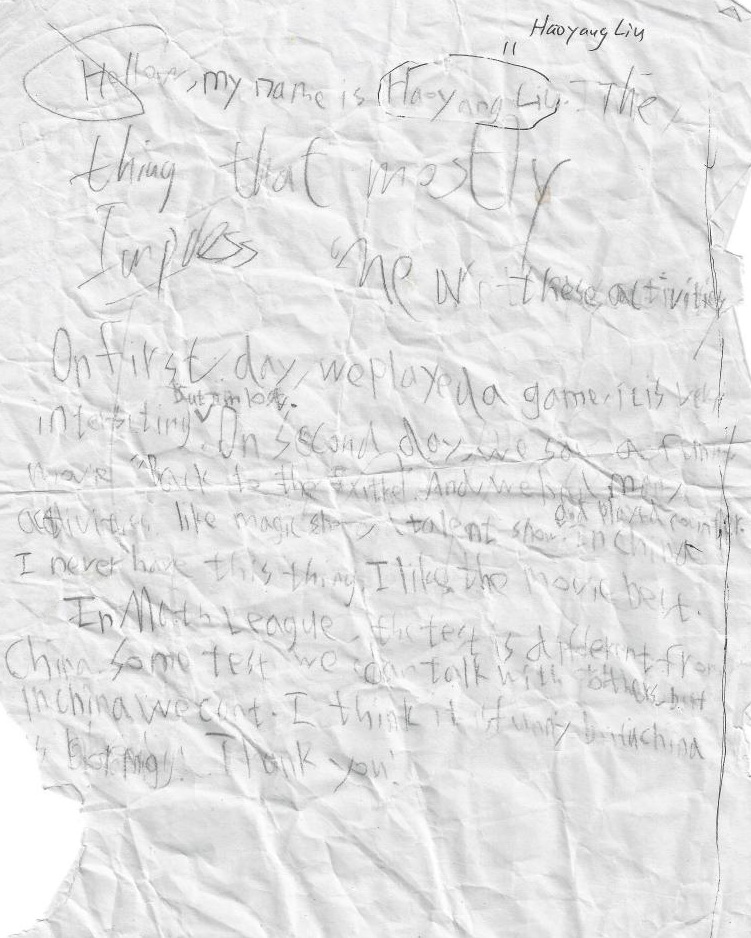 Haoyang Liu
"
Hello, my name is Haoyang Liu. The
thing that mostly
Impress me in these activities
On first day, we played a game. it is very
but im lost.
intersiting. On second day, we saw a funny
move "Back to the And we had many
did played counter.
activiress. like magic show, talent show. In China
I never have this thing, I like the movie best.
In Math League, the test is different from
China. Some test we can talk with others, but
in china we cant. I think it is funny but inchina
is boring! Thank you!